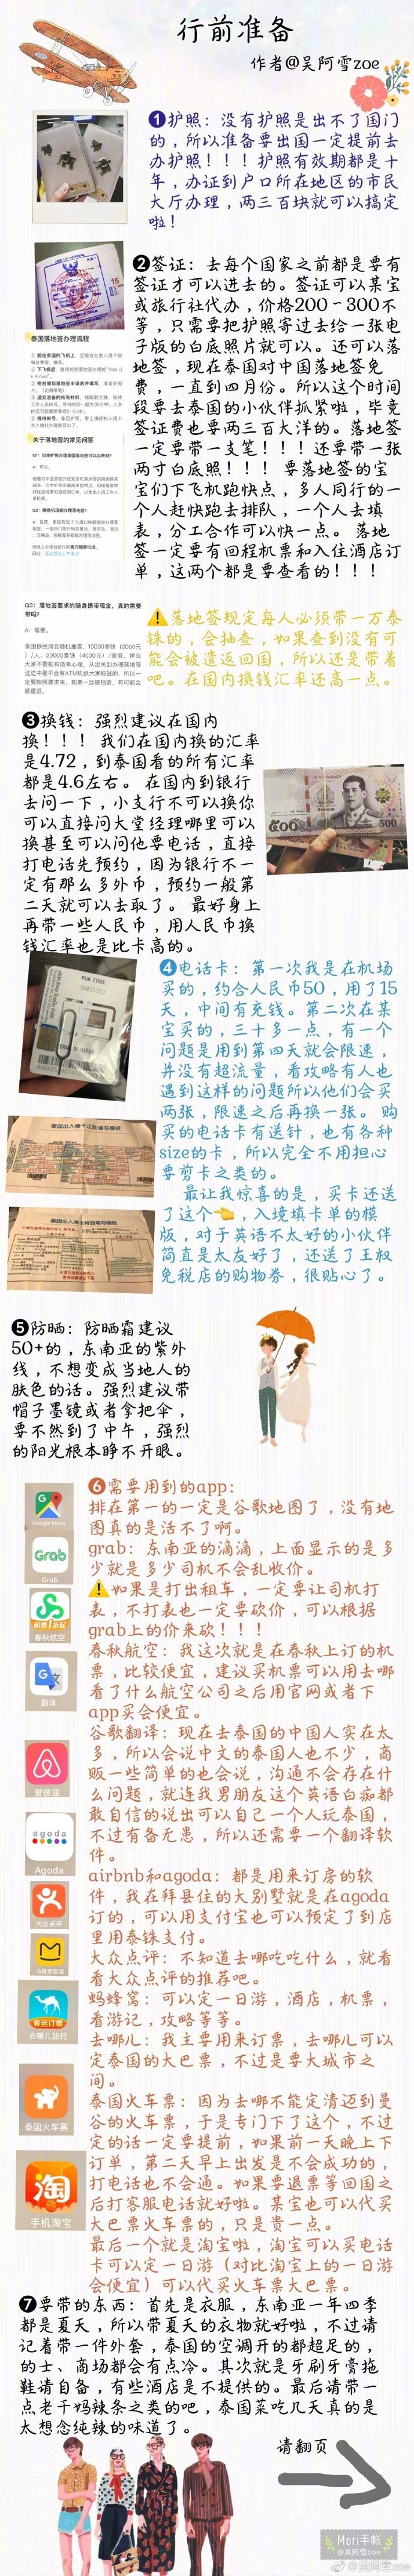 行前准备
作者@吴阿雪zoe
❶护照：没有护照是出不了国门
的，所以准备要出国一定提前去
办护照！！！护照有效期都是十
年，办证到户口所在地区的市民
大厅办理，两三百块就可以搞定
啦！
❷签证：去每个国家之前都是要有
签证才可以进去的。签证可以某宝
或旅行社代办，价格200～300不
等，只需要把护照寄过去给一张电
子版的白底照片就可以。还可以落
地签，现在泰国对中国落地签免
费，一直到四月份。所以这个时间
段要去泰国的小伙伴抓紧啦，毕竟
签证费也要两三百大洋的。落地签
一定要带一支笔！！！还要带一张
两寸白底照！！！ 要落地签的宝
宝们下飞机跑快点，多人同行的一
个人赶快跑去排队，一个人去填
表，分工合作可以快一点。 落地
签一定要有回程机票和入住酒店订
单，这两个都是要查看的！！！
泰国落地签办理流程
关于落地签的常见问答
A：可以。
Q3：落地签要求的随身携带现金，真的需要
带吗？
A：需要。
泰国移民局会随机抽查，10000泰铢（2000元
）/人、20000泰铢（4000元）/家庭，建议
大家不要抱有侥幸心理，从出关到办理落地签
⚠️落地签规定每人必须带一万泰
铢的，会抽查，如果查到没有可
能会被遣返回国，所以还是带着
吧。在国内换钱汇率还高一点。
❸换钱：强烈建议在国内
换！！！ 我们在国内换的汇率
是4.72，到泰国看的所有汇率
都是4.6左右。 在国内到银行
去问一下，小支行不可以换你
可以直接问大堂经理哪里可以
换甚至可以问他要电话，直接
打电话先预约，因为银行不一
定有那么多外币，预约一般第
二天就可以去取了。 最好身上
再带一些人民币，用人民币换
钱汇率也是比卡高的。
500
PUK CODE
❹电话卡：第一次我是在机场
买的，约合人民币50，用了15
天，中间有充钱。第二次在某
宝买的，三十多一点，有一个
问题是用到第四天就会限速，
并没有超流量，看攻略有人也
遇到这样的问题所以他们会买
两张，限速之后再换一张。 购
买的电话卡有送针，也有各种
size的卡，所以完全不用担心
要剪卡之类的。
最让我惊喜的是，买卡还送
了这个👈，入境填卡单的模
版，对于英语不太好的小伙伴
简直是太友好了，还送了王权
免税店的购物券，很贴心了。
❺防晒：防晒霜建议
50+的，东南亚的紫外
线，不想变成当地人的
肤色的话。强烈建议带
帽子墨镜或者拿把伞，
要不然到了中午，强烈
的阳光根本睁不开眼。
❻需要用到的app：
排在第一的一定是谷歌地图了，没有地
图真的是活不了啊。
grab：东南亚的滴滴，上面显示的是多
少就是多少司机不会乱收价。
⚠️如果是打出租车，一定要让司机打
表，不打表也一定要砍价，可以根据
grab上的价来砍！！！
春秋航空：我这次就是在春秋上订的机
票，比较便宜，建议买机票可以用去哪
看了什么航空公司之后用官网或者下
app买会便宜。
谷歌翻译：现在去泰国的中国人实在太
多，所以会说中文的泰国人也不少，商
贩一些简单的也会说，沟通不会存在什
么问题，就连我男朋友这个英语白痴都
敢自信的说出可以自己一个人玩泰国，
不过有备无患，所以还需要一个翻译软
件。
airbnb和agoda：都是用来订房的软
件，我在拜县住的大别墅就是在agoda
订的，可以用支付宝也可以预定了到店
里用泰铢支付。
大众点评：不知道去哪吃吃什么，就看
看大众点评的推荐吧。
蚂蜂窝：可以定一日游，酒店，机票，
看游记，攻略等等。
去哪儿：我主要用来订票，去哪儿可以
定泰国的大巴票，不过是要大城市之
间。
泰国火车票：因为去哪不能定清迈到曼
谷的火车票，于是专门下了这个，不过
定的话一定要提前，如果前一天晚上下
订单，第二天早上出发是不会成功的，
打电话也不会通。如果要退票等回国之
后打客服电话就好啦。某宝也可以代买
大巴票火车票的，只是贵一点。
最后一个就是淘宝啦，淘宝可以买电话
卡可以定一日游（对比淘宝上的一日游
会便宜）可以代买火车票大巴票。
Google Maps
Grab
Grab
春秋航空
翻译
爱彼迎
agoda
Agoda
大众点评
马蜂窝旅游
春运订票
去哪儿旅行
泰国火车票
淘
手机淘宝
❼要带的东西：首先是衣服，东南亚一年四季
都是夏天，所以带夏天的衣物就好啦，不过请
记着带一件外套，泰国的空调开的都超足的，
的士、商场都会有点冷。其次就是牙刷牙膏拖
鞋请自备，有些酒店是不提供的。最后请带一
点老干妈辣条之类的吧，泰国菜吃几天真的是
太想念纯辣的味道了。
请翻页
Mori手帐
@吴阿雪zoe
@吴阿雪zoe